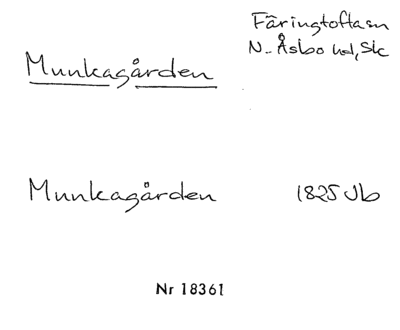 Färingtofta sn
N. Åsbo hd, Sk
Munkagården
Munkagården 1825 Jb
Nr 18361